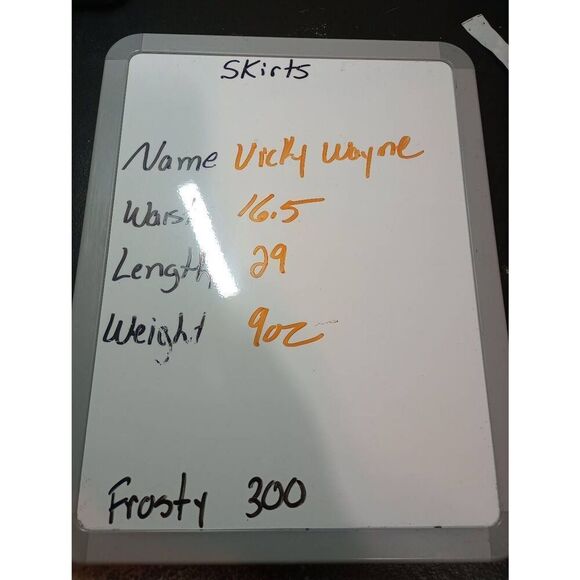 Skirts
Name Vicky Wayne
Waist 16.5
Length 29
Weight 9oz
Frosty 300